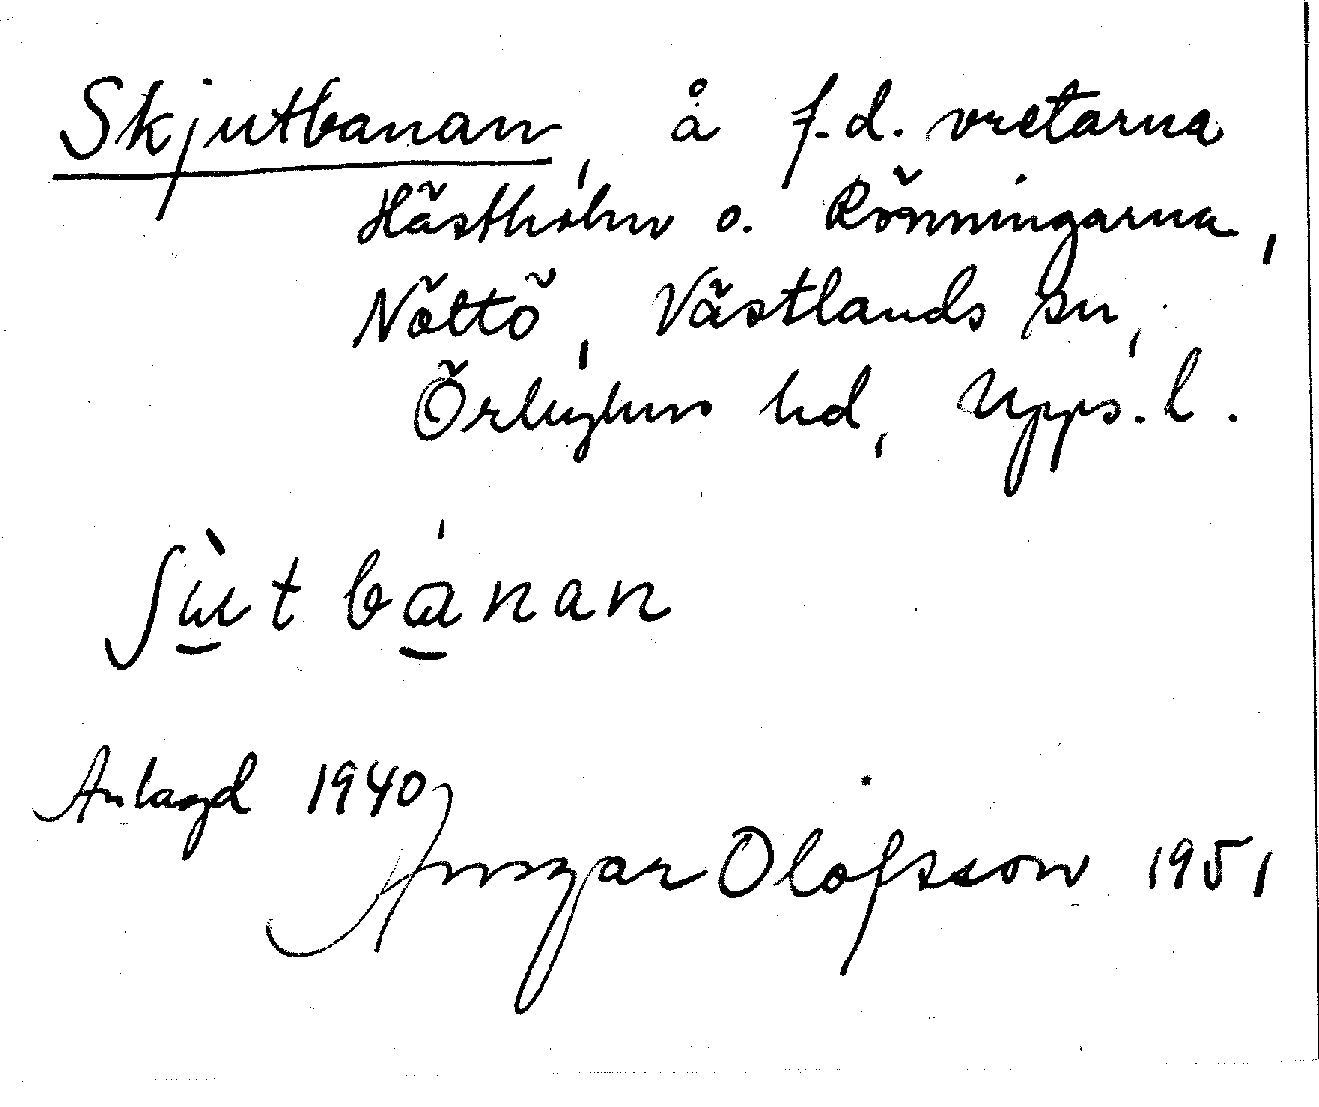 Skjutbanan, å f.d. vretarna
Hästholm o. Rönningarna,
Nöttö, Västlands sn,
Örbyhus hd, Upps. l.
ʃu̱̇̀t ba̱̍nan
Anlagd 1940
Ansgar Olofsson 1951